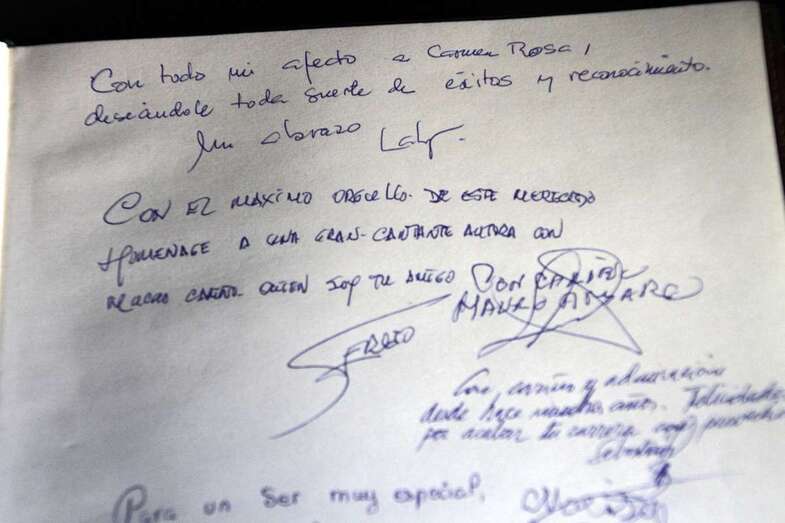 Con todo mi afecto a Carmen Rosa,
deseándole toda suerte de éxitos y reconocimiento.
Un abrazo
CON EL MAXIMO ORGULLO DE ESTE MERECIDO
HOMENAGE A UNA GRAN CANTANTE AUTORA CON
MUCHO CARIÑO QUIEN SOY TU AMIGO
SERGIO
CON CARIÑO
MAURO
Con cariño y admiración
desde hace muchos años. Felicidades
por tu carrera
Para un ser muy especial,